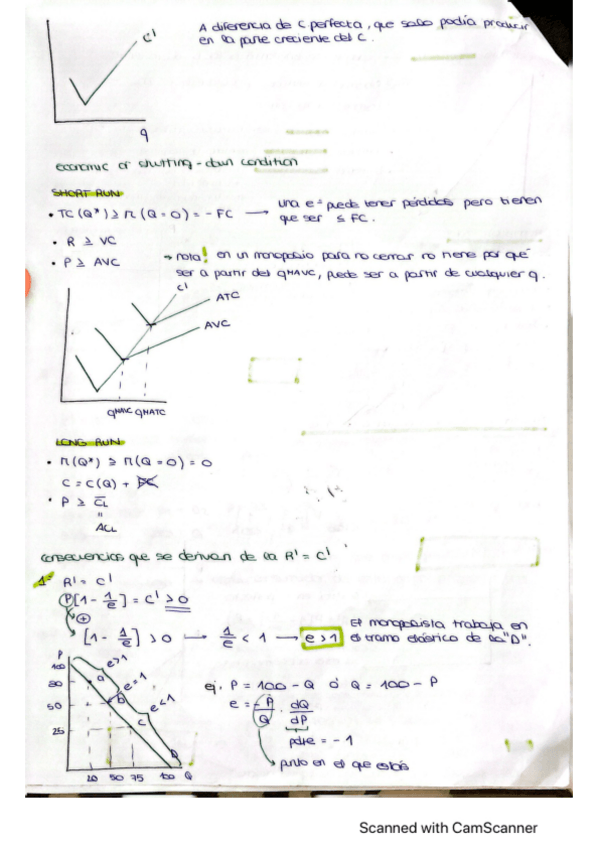 A diferencia de C perfecta, que solo podía producir
en la parte creciente del C.
C'
q
economic or shutting-down condition
SHORT RUN
• TC(Q*) ≥ π(Q=0) = -FC → una eª puede tener pérdidas pero tienen
que ser ≤ FC.
• R ≥ VC
• P ≥ AVC → nota! en un monopolio para no cerrar no tiene por qué
ser a partir del qMAVC, puede ser a partir de cualquier q.
C'
ATC
AVC
qMAVC qMATC
LONG RUN
• π(Q*) ≥ π(Q=0) = 0
C = C(Q) + FC
• P ≥ CL
"
ACL
consecuencias que se derivan de la R' = C'
1ª R' = C'
P[1 - 1/e] = C' > 0
(+)
[1 - 1/e] > 0 → 1/e < 1 → e > 1 El monopolista trabaja en
el tramo elástico de la "D".
P
100
80
50
25
e>1
a
e=1
b
e<1
c
D
20 50 75 100 Q
ej. P = 100 - Q ó Q = 100 - P
e = -P/Q · dQ/dP
pdte = -1
punto en el que estás
Scanned with CamScanner